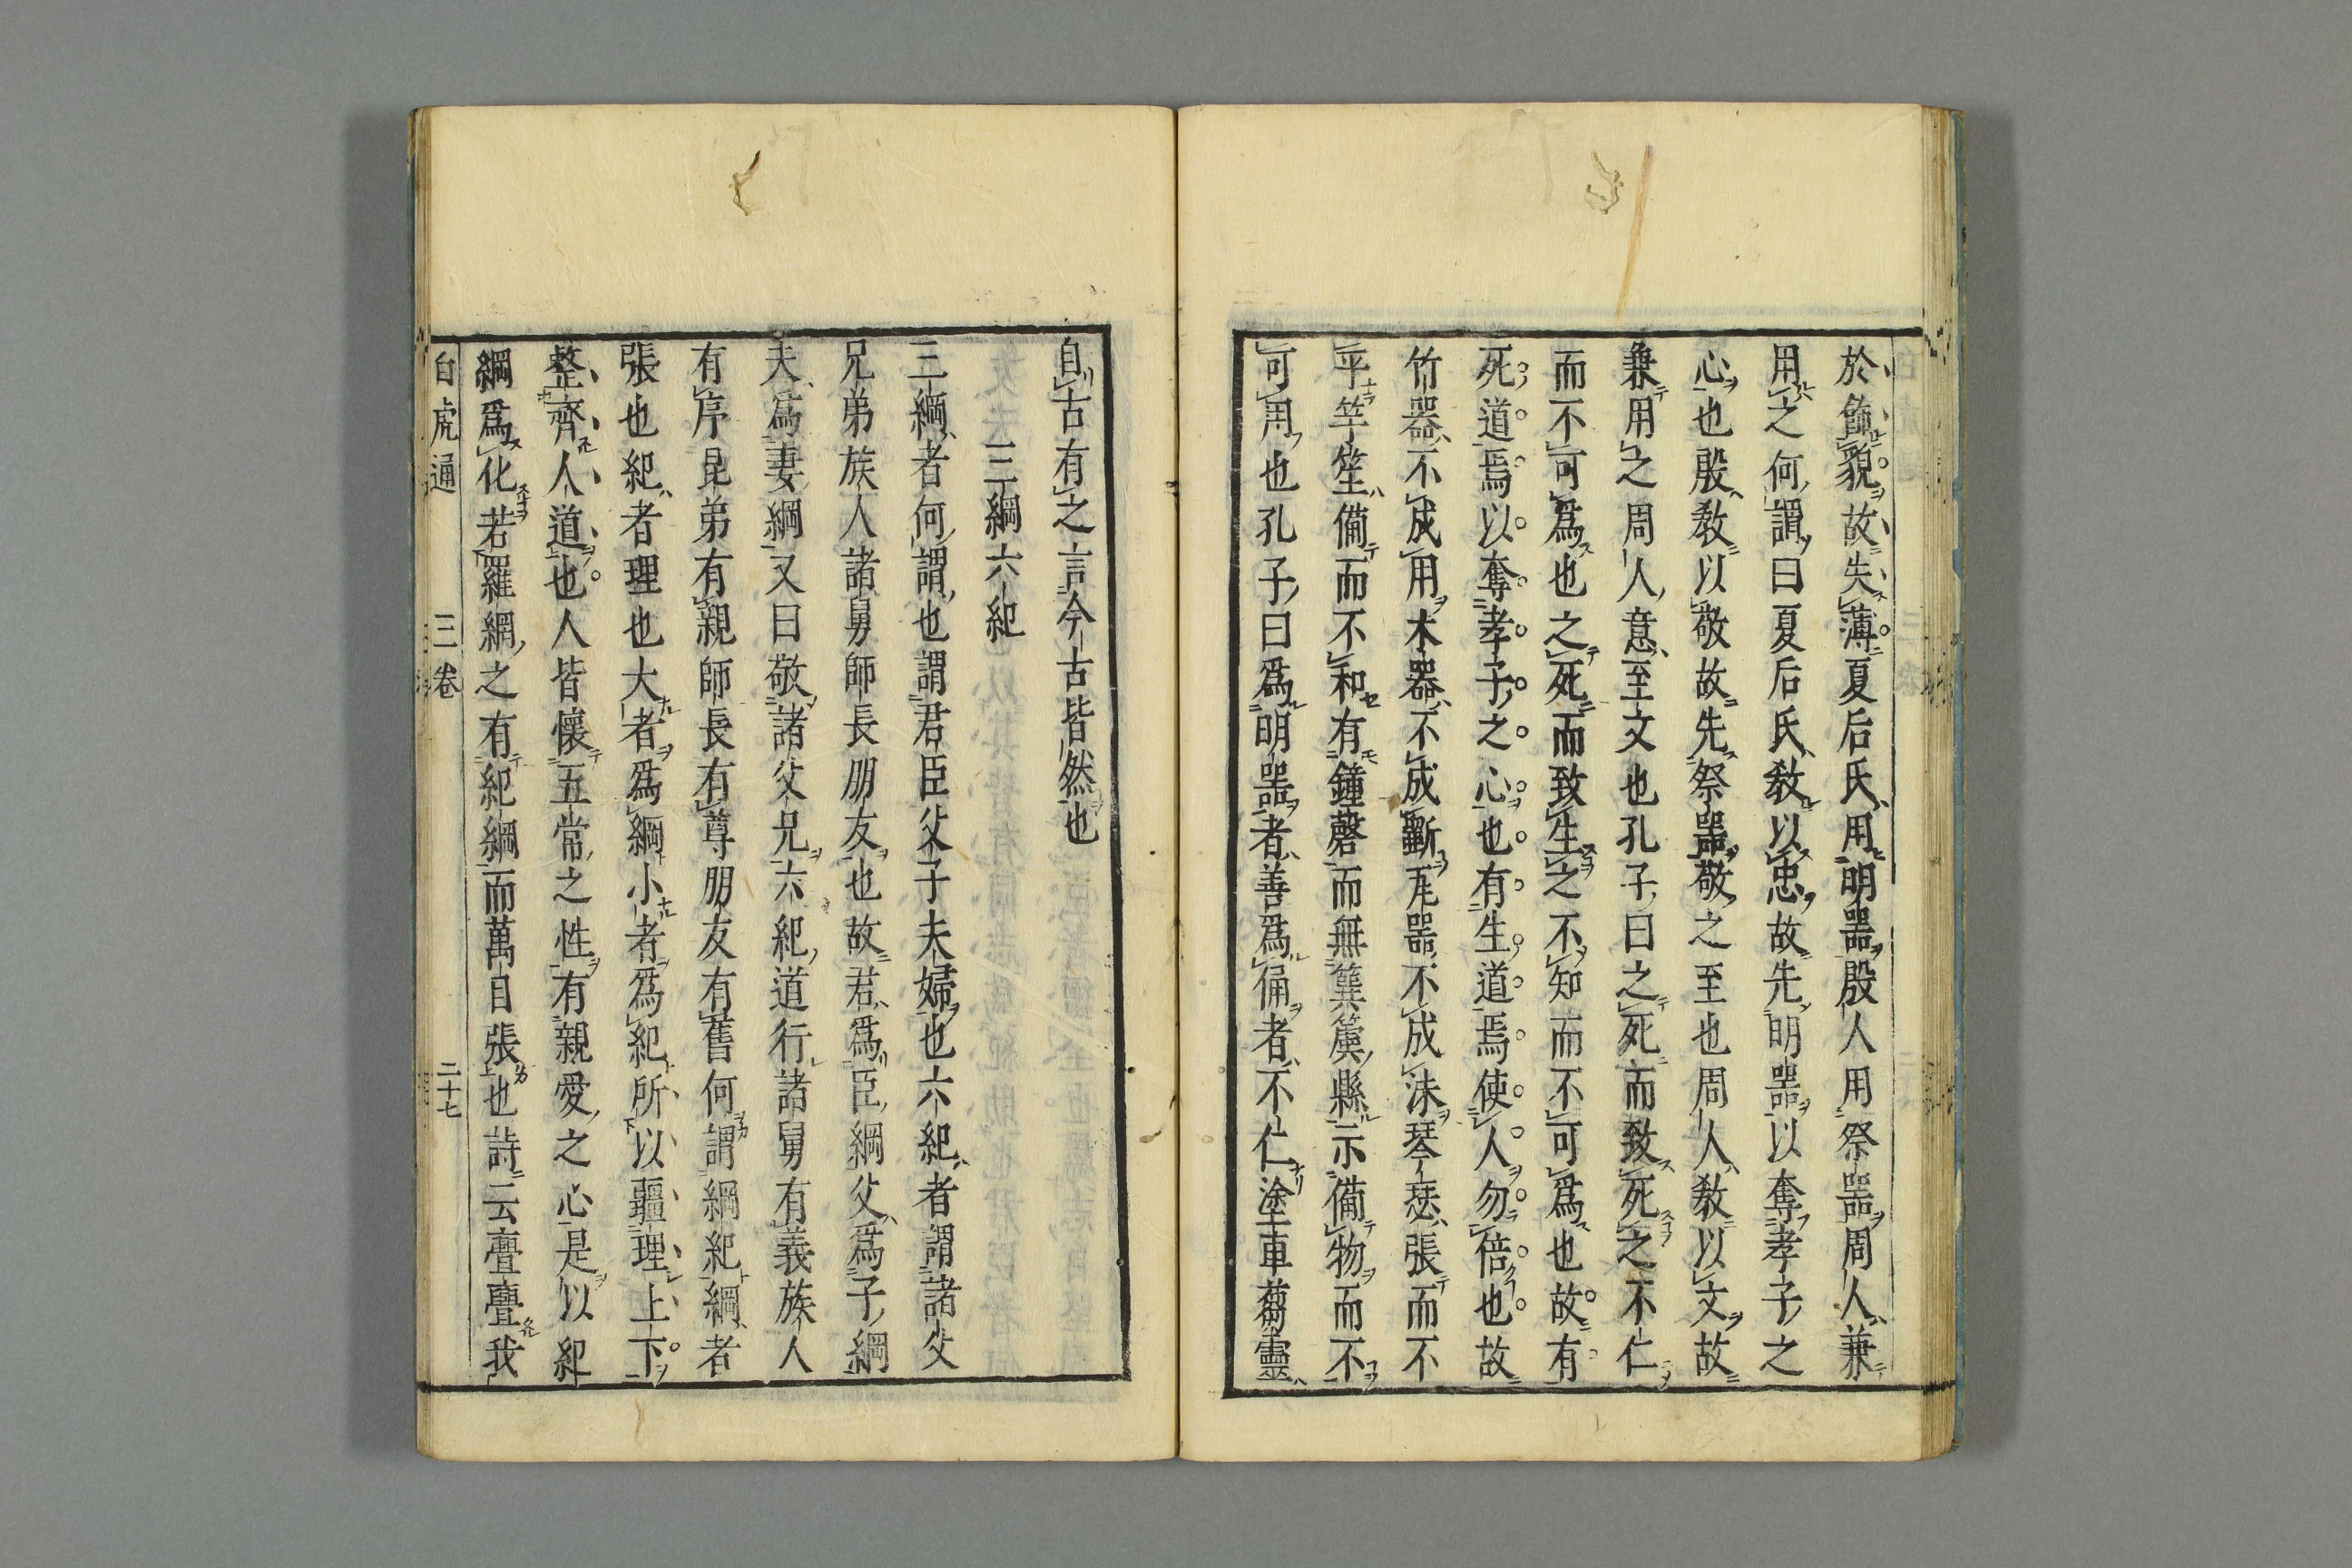 於飾貌故失薄夏后氏用明噐殷人用祭噐周人兼
用之何謂曰夏后氏敎以忠故先明噐以奪孝子之
心也殷敎以敬故先祭噐敬之至也周人敎以文故
兼用之周人意至文也孔子曰之死而致死之不仁
而不可爲也之死而致生之不知而不可爲也故有
死道焉以奪孝子之心也有生道焉使人勿倍也故
竹器不成用木器不成斷瓦噐不成沬琴瑟張而不
平竽笙備而不和有鐘磬而無簨簴縣示備物而不
可用也孔子曰爲明噐者善爲俑者不仁塗車蒭靈
自古有之言今古皆然也
三綱六紀
三綱者何謂也謂君臣父子夫婦也六紀者謂諸父
兄弟族人諸舅師長朋友也故君爲臣綱父爲子綱
夫爲妻綱又曰敬諸父兄六紀道行諸舅有義族人
有序昆弟有親師長有尊朋友有舊何謂綱紀綱者
張也紀者理也大者爲綱小者爲紀所以疆理上下
整齊人道也人皆懷五常之性有親愛之心是以紀
綱爲化若羅網之有紀綱而萬目張也詩云亹亹我
白虎通 三卷 二十七